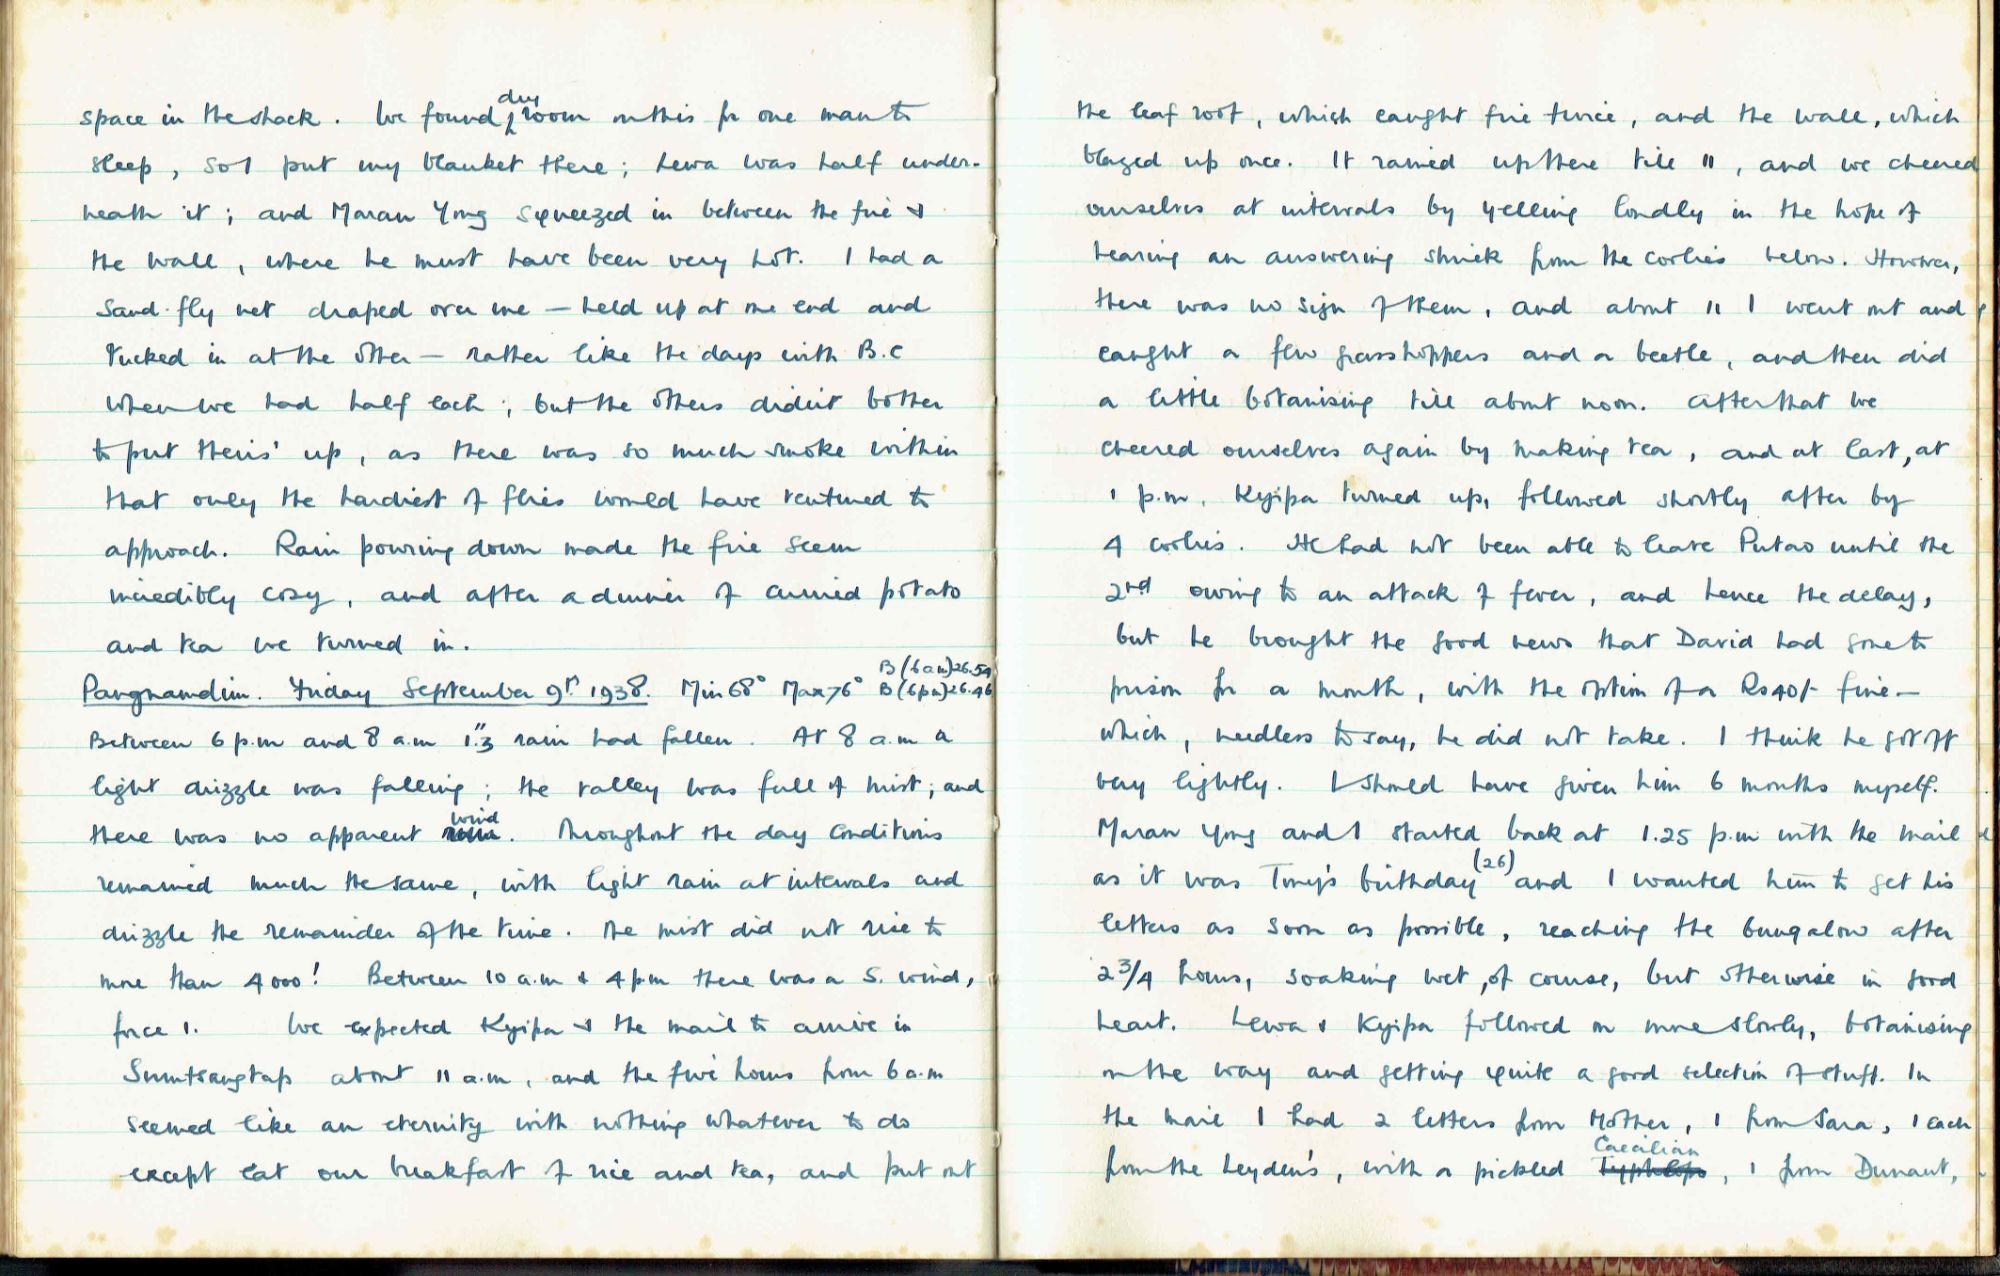 space in the shack. We found dry room on this for one man to
sleep, so I put my blanket there; Lewa was half under-
neath it; and Maran Yong squeezed in between the fire &
the wall, where he must have been very hot. I had a
sand-fly net draped over me — held up at one end and
tucked in at the other — rather like the days with B.C
when we had half each; but the others didn't bother
to put theirs' up, as there was so much smoke within
that only the hardiest of flies would have ventured to
approach. Rain pouring down made the fire seem
incredibly cosy, and after a dinner of curried potato
and tea we turned in.
Pangnamdim. Friday September 9th 1938. Min 68° Max 76° B (6am) 26.54 B (6pm) 26.46
Between 6 p.m and 8 a.m 1".3 rain had fallen. At 8 a.m a
light drizzle was falling; the valley was full of mist; and
there was no apparent rain wind. Throughout the day conditions
remained much the same, with light rain at intervals and
drizzle the remainder of the time. The mist did not rise to
more than 4000! Between 10 a.m & 4 pm there was a S. wind,
force 1. We expected Kyipa & the mail to arrive in
Sumtsangtap about 11 a.m, and the five hours from 6 a.m
seemed like an eternity with nothing whatever to do
except eat our breakfast of rice and tea, and put out
the leaf roof, which caught fire twice, and the wall, which
blazed up once. It rained up there till 11, and we cheered
ourselves at intervals by yelling loudly in the hope of
hearing an answering shriek from the coolies below. However,
there was no sign of them, and about 11 I went out and
caught a few grasshoppers and a beetle, and then did
a little botanising till about noon. After that we
cheered ourselves again by making tea, and at last, at
1 p.m, Kyipa turned up, followed shortly after by
4 coolies. He had not been able to leave Putao until the
2nd owing to an attack of fever, and hence the delay,
but he brought the good news that David had gone to
prison for a month, with the option of a Rs40/- fine —
which, needless to say, he did not take. I think he got off
very lightly. I should have given him 6 months myself.
Maran Yong and I started back at 1.25 p.m with the mail
as it was Tony's birthday (26) and I wanted him to get his
letters as soon as possible, reaching the bungalow after
2 3/4 hours, soaking wet, of course, but otherwise in good
heart. Lewa & Kyipa followed on more slowly, botanising
on the way and getting quite a good selection of stuff. In
the mail I had 2 letters from Mother, 1 from Sara, 1 each
from the Leyden's, with a pickled Typhlops Caecilian, 1 from Dunaut,